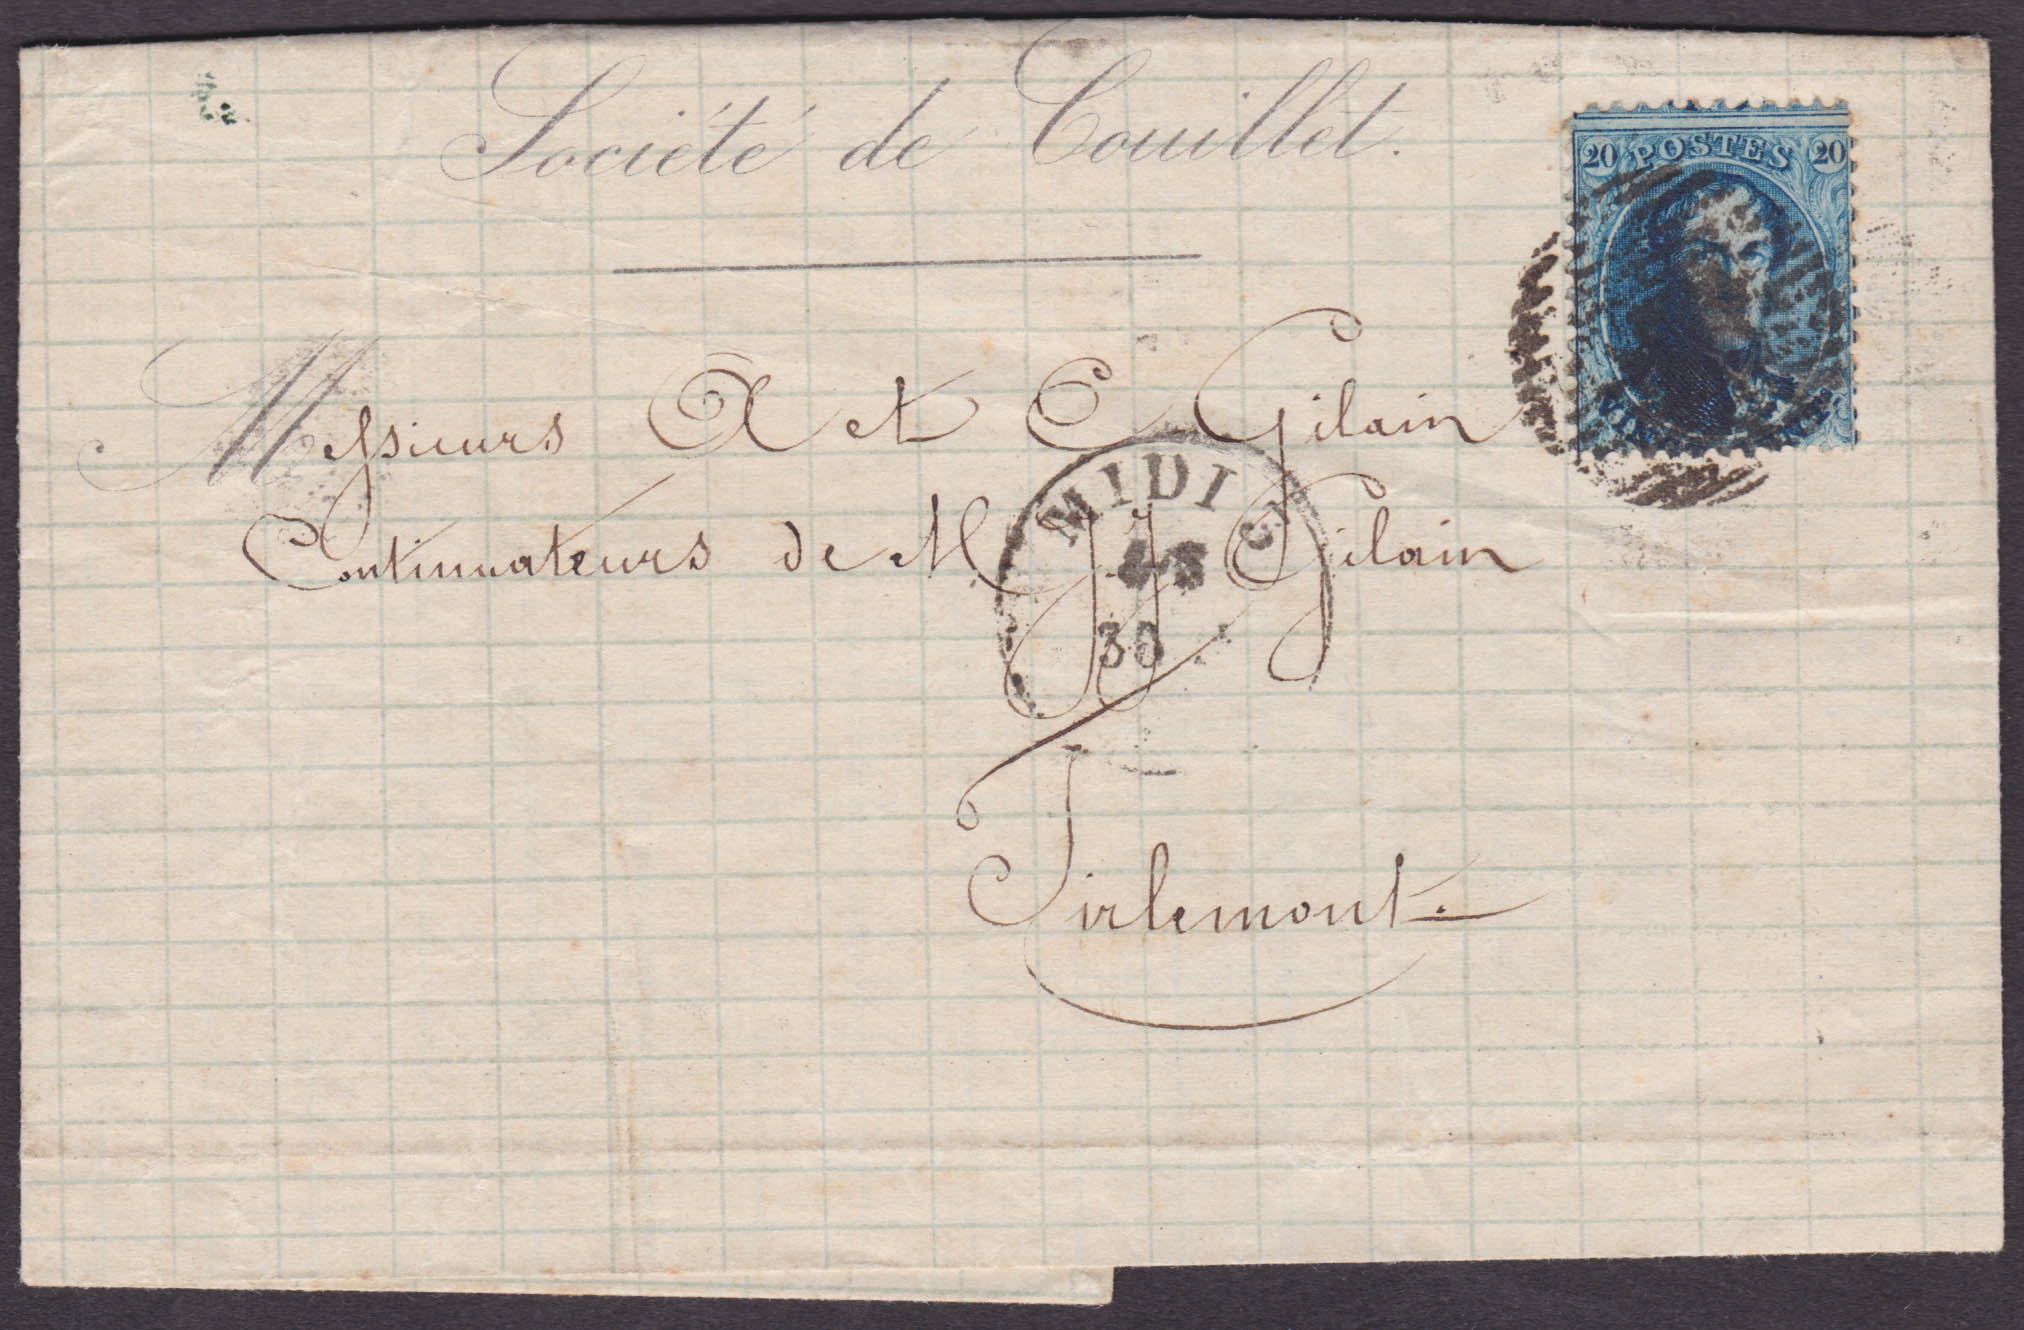 Société de Couillet.
20 POSTES 20
Messieurs A et C Gilain
MIDI
Continuateurs de M JJ Gilain
30
Tirlemont.